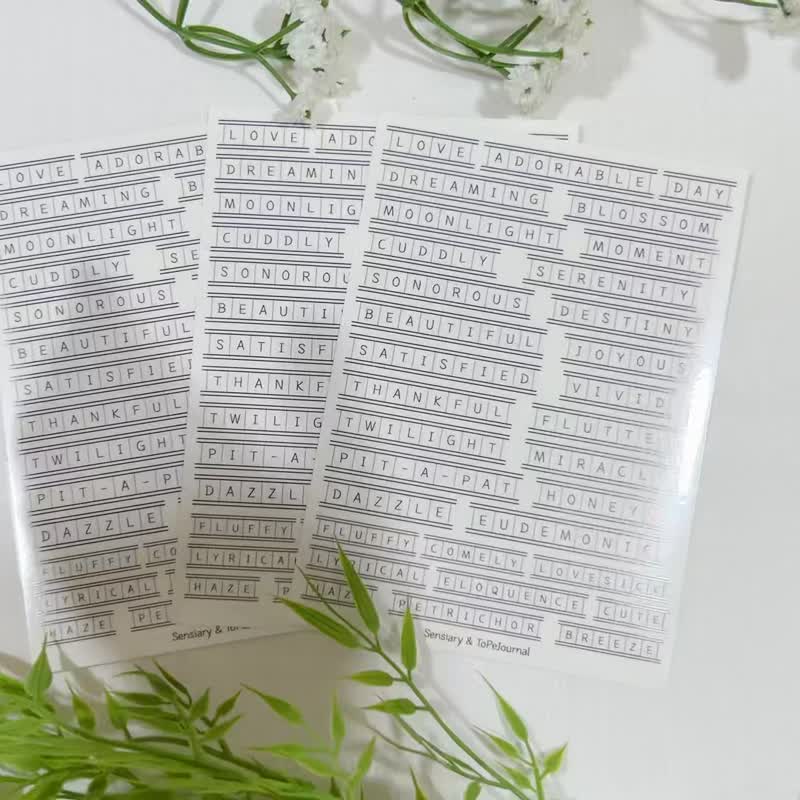 LOVE ADORAB
DREAMING B
MOONLIGHT
CUDDLY SE
SONOROUS
BEAUTIFUL
SATISFIE
THANKFUL
TWILIGHT
PIT-A-P
DAZZLE
FLUFFY CO
LYRICAL
HAZE PE
Sensiary &
LOVE ADO
DREAMIN
MOONLIG
CUDDLY
SONOROU
BEAUTI
SATISF
THANKF
TWILIG
PIT-A-
DAZZL
FLUFFY
LYRICA
HAZE P
LOVE ADORABLE DAY
DREAMING BLOSSOM
MOONLIGHT MOMENT
CUDDLY SERENITY
SONOROUS DESTINY
BEAUTIFUL JOYOUS
SATISFIED VIVID
THANKFUL FLUTTE
TWILIGHT MIRACL
PIT-A-PAT HONEY
DAZZLE EUDEMONIC
FLUFFY COMELY LOVESICK
LYRICAL ELOQUENCE CUTE
HAZE PETRICHOR BREEZE
Sensiary & ToPeJournal